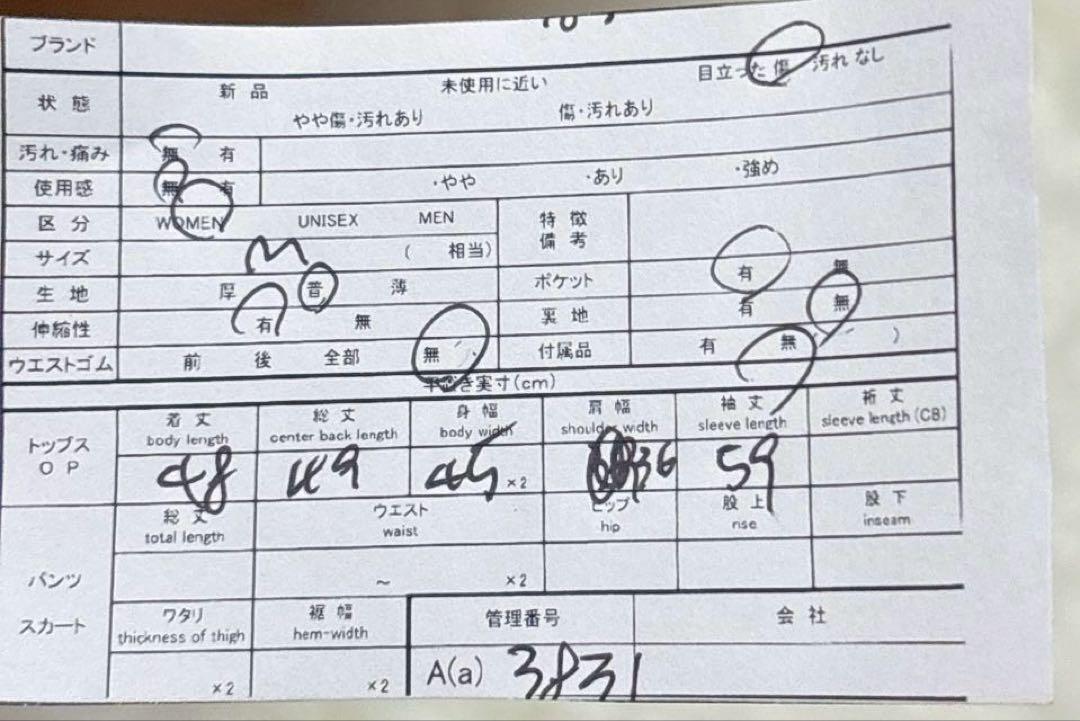 ブランド
状態 新品 未使用に近い 目立った傷 汚れなし
やや傷・汚れあり 傷・汚れあり
汚れ・痛み 無 有
使用感 無 有 ・やや ・あり ・強め
区分 WOMEN UNISEX MEN 特徴備考
サイズ M ( 相当)
生地 厚 普 薄 ポケット 有 無
伸縮性 有 無 裏地 有 無
ウエストゴム 前 後 全部 無 付属品 有 無 )
平置き実寸(cm)
トップス OP 着丈 総丈 身幅 肩幅 袖丈 裄丈
body length center back length body width shoulder width sleeve length sleeve length (CB)
48 49 45 ×2 36 59
総丈 ウエスト ヒップ 股上 股下
total length waist hip rise inseam
パンツ ~ ×2
スカート ワタリ 裾幅 管理番号 会社
thickness of thigh hem-width
×2 ×2 A(a) 3831